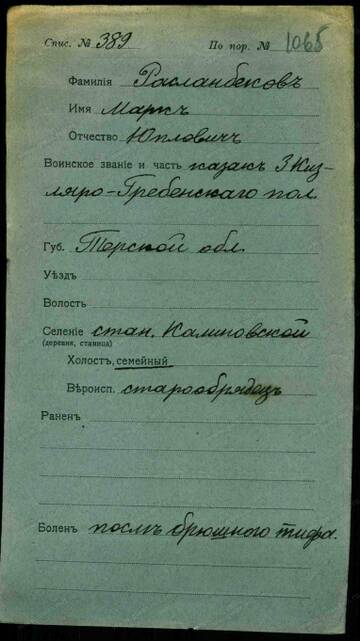 Спис. № 389 По пор. № 1065
Фамилія Расланбековъ
Имя Маркъ
Отчество Юпловичъ
Воинское званіе и часть казакъ 3 Киз-
ляро-Гребенскаго пол
Губ. Терской обл
Уѣздъ
Волость
Селеніе стан. Калиновской
(деревня, станица)
Холостъ, семейный
Вѣроисп. старообрядецъ
Раненъ
Боленъ послѣ брюшного тифа.